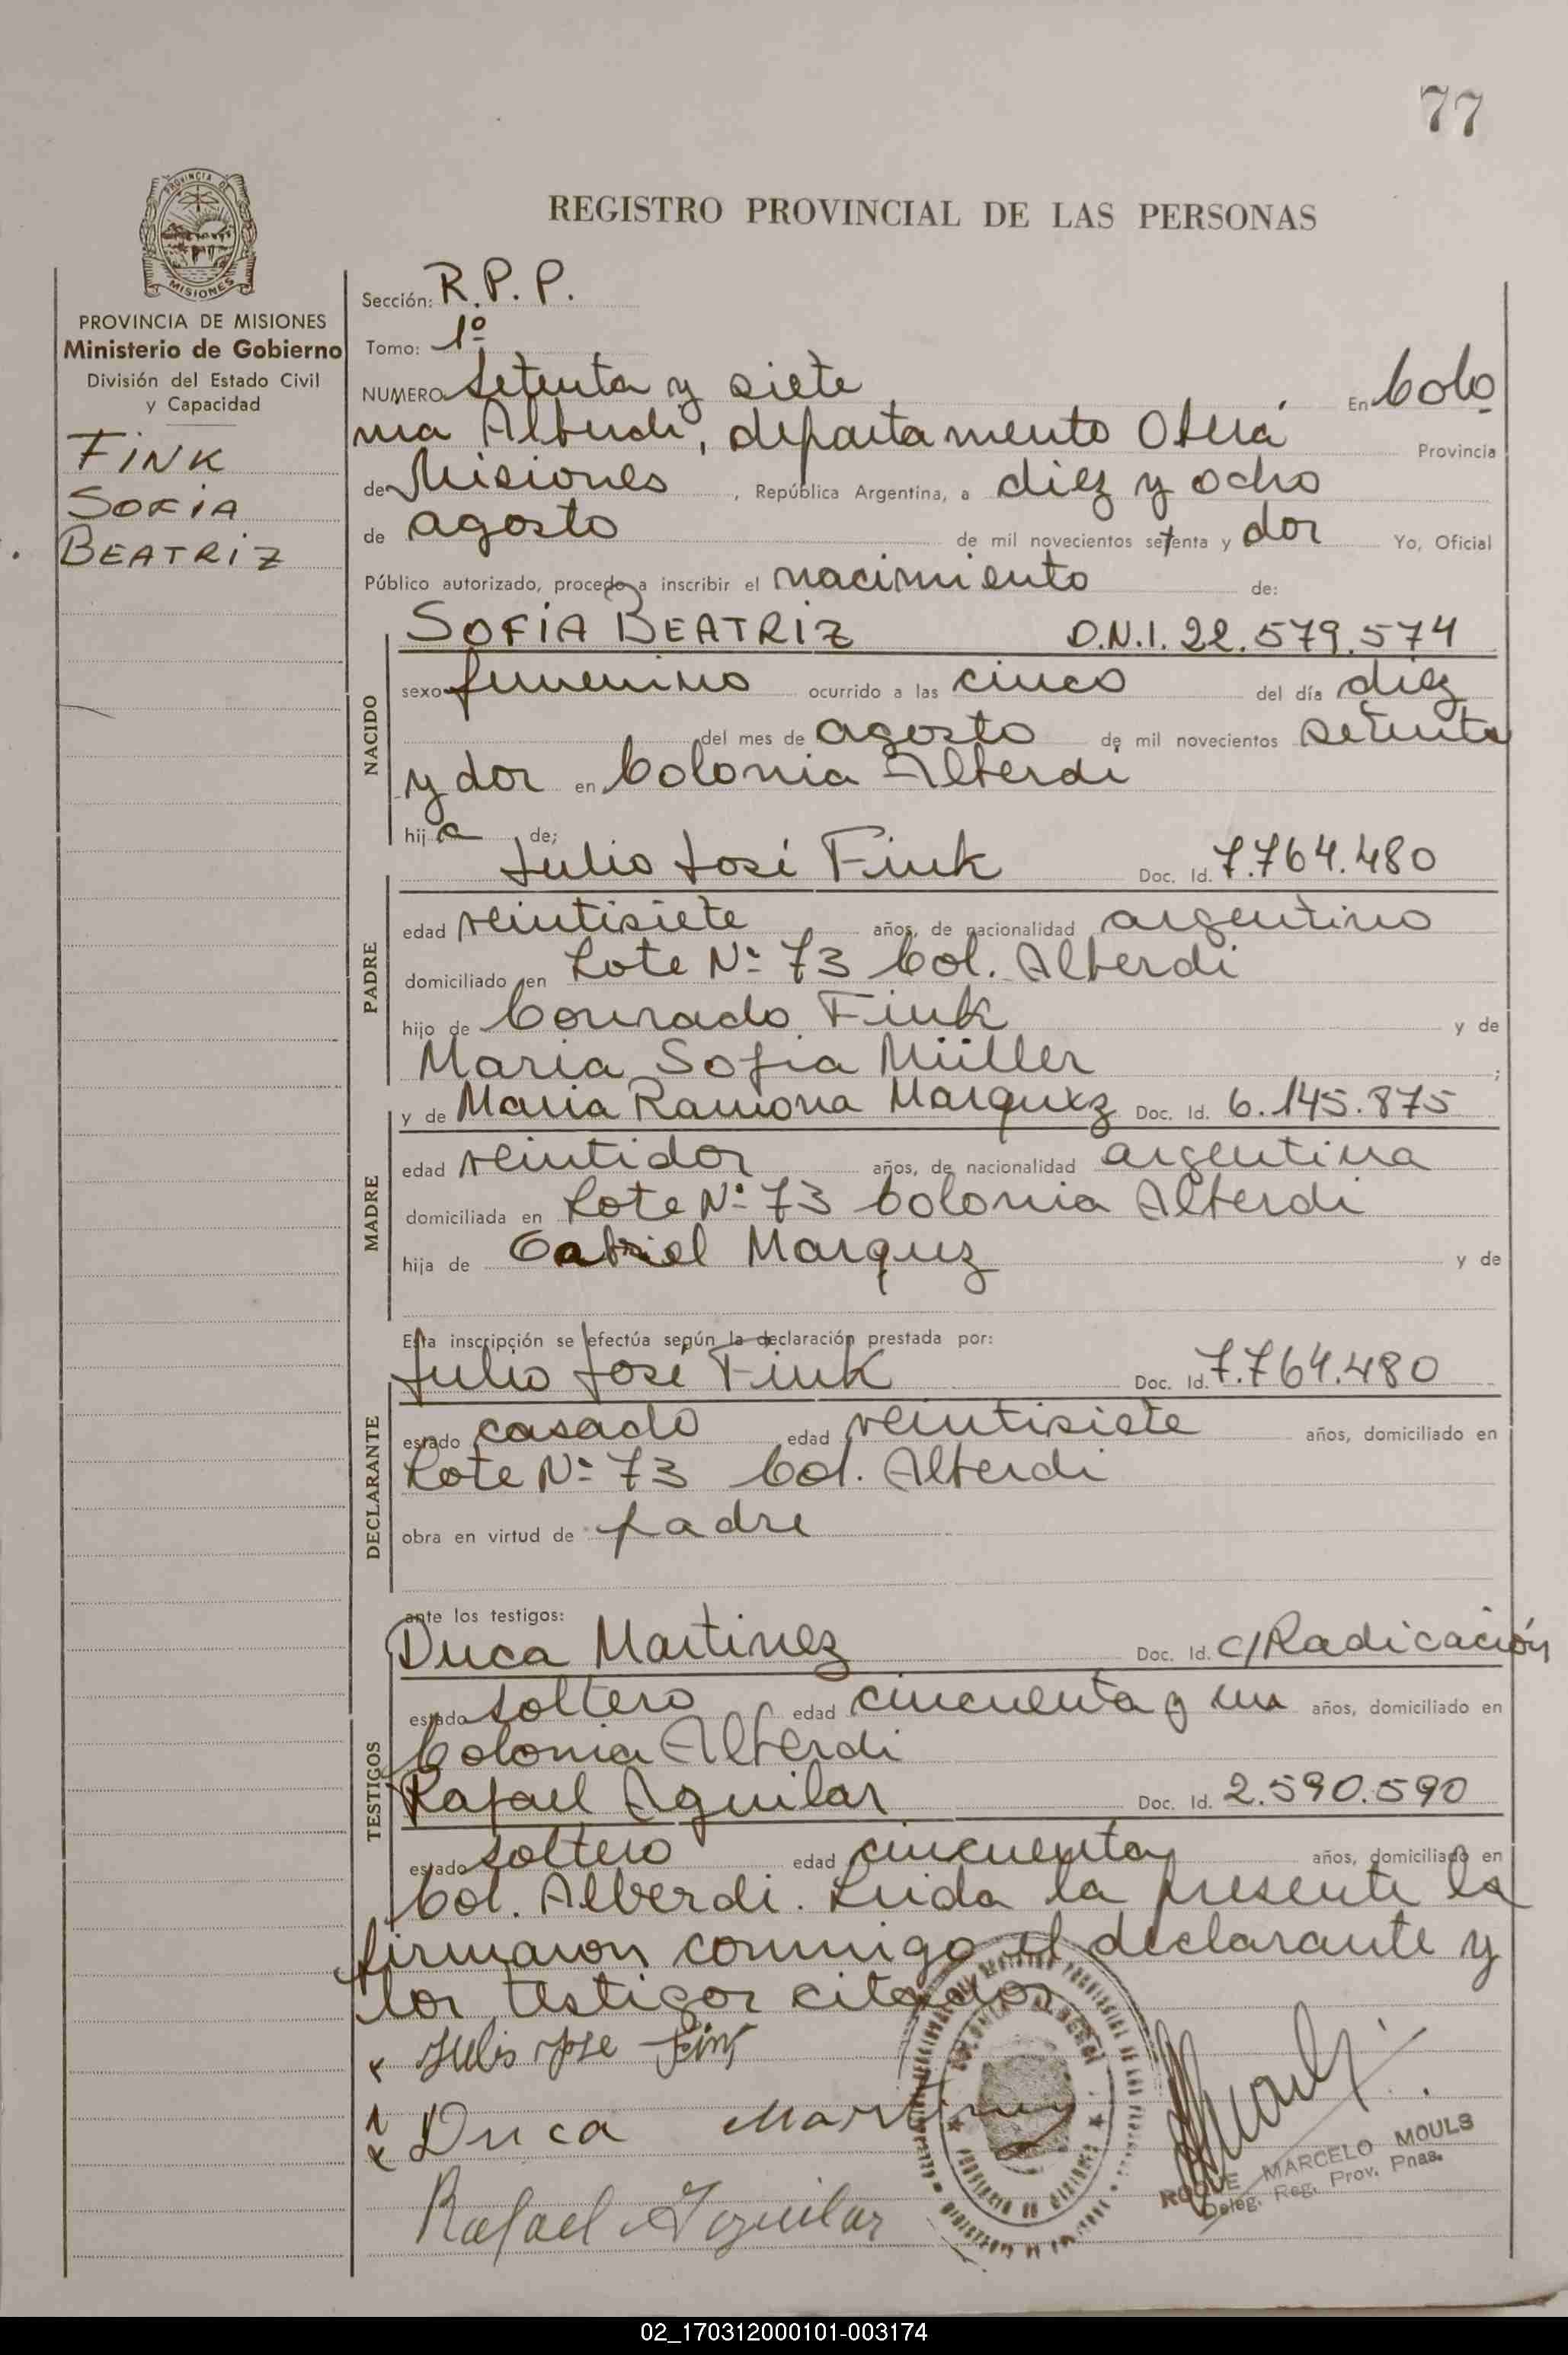 77
PROVINCIA DE
MISIONES
REGISTRO PROVINCIAL DE LAS PERSONAS
PROVINCIA DE MISIONES
Ministerio de Gobierno
División del Estado Civil
y Capacidad
FINK
SOFIA
BEATRIZ
Sección: R.P.P.
Tomo: 1º
NUMERO Setenta y siete En Colo
nia Alberdi, departamento Oberá Provincia
de Misiones, República Argentina, a diez y ocho
de agosto de mil novecientos setenta y dos Yo, Oficial
Público autorizado, procedo a inscribir el nacimiento de:
NACIDO
SOFÍA BEATRIZ D.N.I. 22.579.574
sexo femenino ocurrido a las cinco del día diez
del mes de agosto de mil novecientos setenta
y dos en Colonia Alberdi
hija de;
PADRE
Julio José Fink Doc. Id. 7.764.480
edad veintisiete años, de nacionalidad argentino
domiciliado en Lote Nº 73 Col. Alberdi
hijo de Conrado Fink y de
Maria Sofia Müller ;
MADRE
y de Maria Ramona Marquez Doc. Id. 6.145.875
edad veintidos años, de nacionalidad argentina
domiciliada en Lote Nº 73 Colonia Alberdi
hija de Gabriel Marquez y de
DECLARANTE
Esta inscripción se efectúa según la declaración prestada por:
Julio José Fink Doc. Id. 7.764.480
estado casado edad veintisiete años, domiciliado en
Lote Nº 73 Col. Alberdi
obra en virtud de padre
TESTIGOS
ante los testigos:
Duca Martinez Doc. Id. c/Radicación
estado soltero edad cincuenta y un años, domiciliado en
Colonia Alberdi
Rafael Aguilar Doc. Id. 2.590.590
estado soltero edad cincuenta años, domiciliado en
Col. Alberdi. Leida la presente la
firmaron conmigo el declarante y
los testigos citados
Julio Jose Fink
Duca Martinez
Rafael Aguilar
ROQUE MARCELO MOULS
Deleg. Reg. Prov. Pnas.
02_170312000101-003174